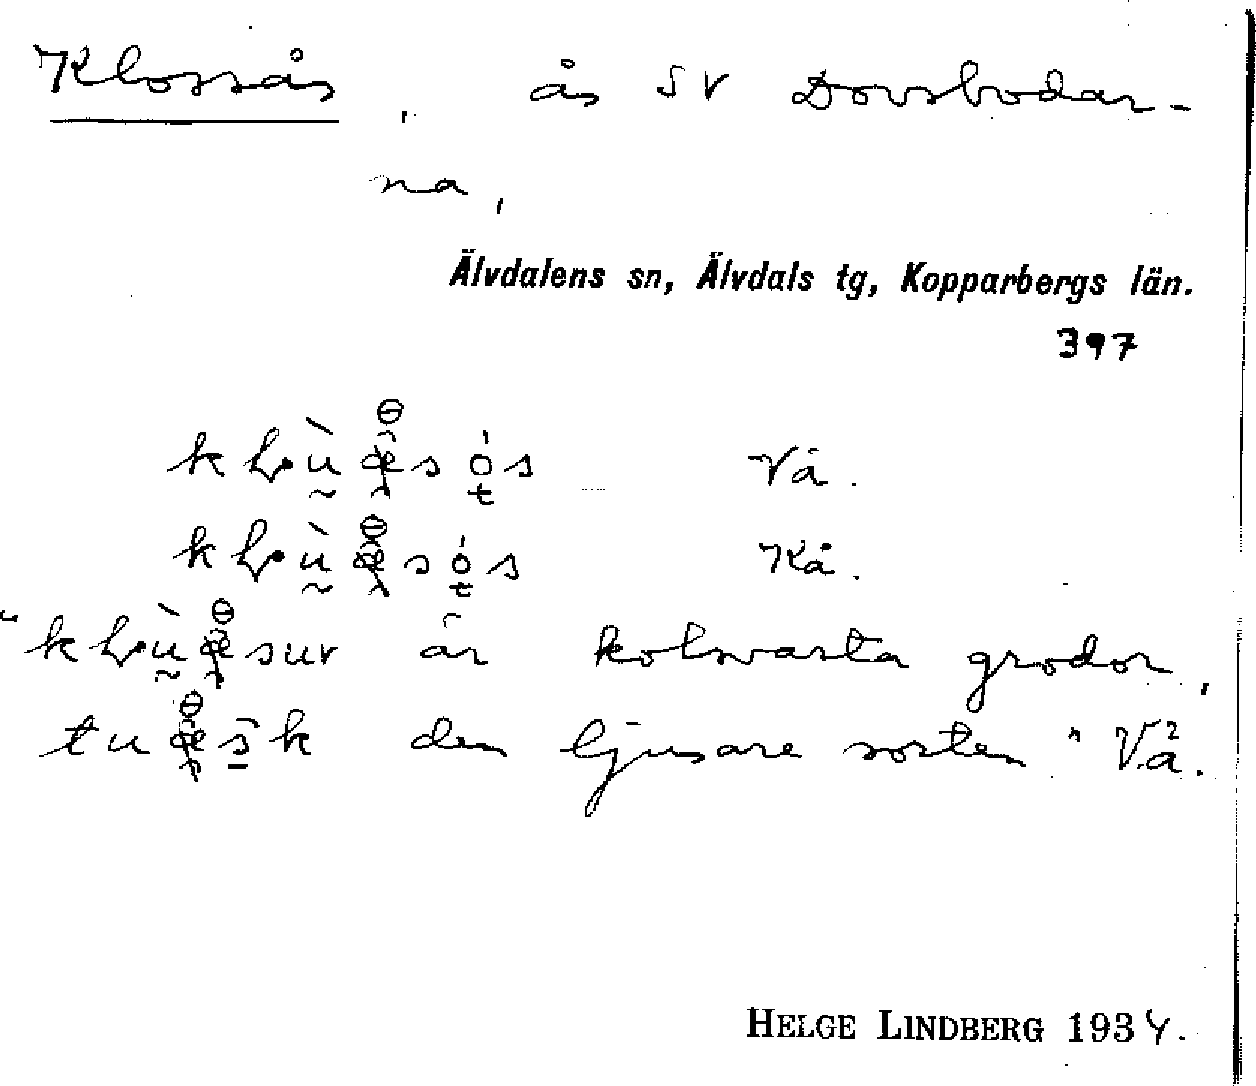 Klossås, ås SV Dovsbodar-
na,
Älvdalens sn, Älvdals tg, Kopparbergs län.
397
Vå.
Kå.
är kolsvarta grodor,
den ljusare sorten" Vå².
HELGE LINDBERG 1934.